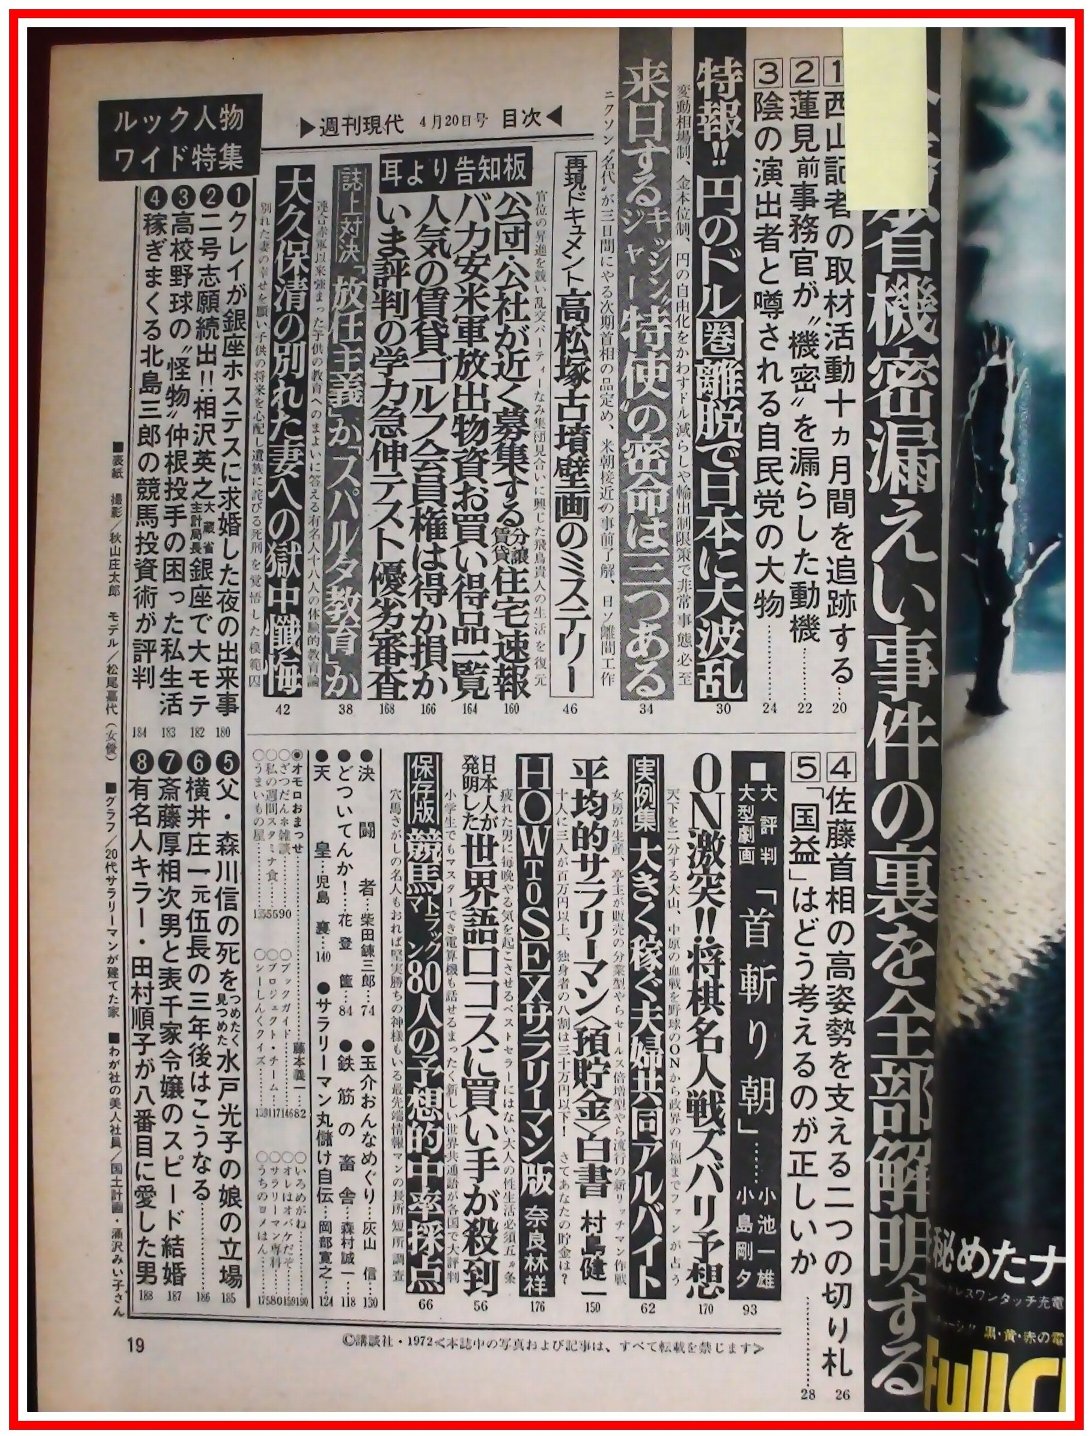 省機密漏えい事件の裏を全部解明する
1 西山記者の取材活動十ヵ月間を追跡する…20
2 蓮見前事務官が〝機密〟を漏らした動機…22
3 陰の演出者と噂される自民党の大物…24
4 佐藤首相の高姿勢を支える二つの切り札…26
5 「国益」はどう考えるのが正しいか…28
特報!! 円のドル圏離脱で日本に大波乱 30
変動相場制、金本位制、円の自由化をかわすドル減らしや輸出制限策で非常事態必至
来日するキッシンジャー〝特使〟の密命は三つある 34
ニクソン名代が三日間にやる次期首相の品定め、米朝接近の事前了解、日ソ離間工作
再現ドキュメント 高松塚古墳壁画のミステリー 46
官位の昇進を競い乱交パーティーなみ集団見合いに興じた飛鳥貴人の生活を復元
▶週刊現代 4月20日号 目次◀
耳より告知板
公団・公社が近く募集する分譲賃貸住宅速報 160
バカ安米軍放出物資お買い得品一覧 164
人気の賃貸ゴルフ会員権は得か損か 166
いま評判の学力急伸テスト優劣審査 168
誌上対決「放任主義」か「スパルタ教育」か 38
連合赤軍以来強まった子供の教育へのまよいに答える有名人十八人の体験的教育論
大久保清の別れた妻への獄中懺悔 42
別れた妻の幸せを願い子供の将来を心配し遺族に詫びる死刑を覚悟した模範囚
■大評判大型劇画「首斬り朝」……小池一雄 小島剛夕 93
ON激突!!将棋名人戦ズバリ予想 170
天下を二分する大山、中原の血戦を野球のONから政界の角福までファンが占う
実例集 大きく稼ぐ夫婦共同アルバイト 62
女房が生産、亭主が販売の分業型やらセールス倍増型やら流行の新リッチマン作戦
平均的サラリーマン〈預貯金〉白書 村島健一 150
十人に三人が百万円以上、独身者の八割は三十万円以下! さてあなたの貯金は?
HOW TO SEXサラリーマン版 奈良林祥 176
疲れた男に毎晩やる気を起こさせるベストセラーにはない大人の性生活必須五ヵ条
日本人が発明した世界語ロコスに買い手が殺到 56
小学生でもマスターでき電算機も話せるまったく新しい世界共通語が各国で大評判
保存版 競馬トラックマン80人の予想的中率採点 66
穴馬さがしの名人もおれば堅実勝ちの神様もいる最先端情報マンの長所短所調査
●決闘者…柴田錬三郎…74 ●玉介おんなめぐり…灰山信…130
●どついてんか!…花登筐…84 ●鉄筋の畜舎…森村誠一…118
●天皇…児島襄…140 ●サラリーマン丸儲け自伝…岡部寛之…124
◉オモロおまっせ 藤本義一…82 ○いろめがね…190
○ざつだんホ雑談…90 ○ブックガイド…146 ○オレはオバケだぞ…159
○私の週間スタミナ食…55 ○プロジェクト・チーム…117 ○サラリーマン専科…80
○うまいもの屋…135 ○シーしんくクイズ…139 ○うちのヨメはん…175
ルック人物ワイド特集
❶クレイが銀座ホステスに求婚した夜の出来事 180
❷二号志願続出!!相沢英之大蔵省主計局長銀座で大モテ 182
❸高校野球の〝怪物〟仲根投手の困った私生活 183
❹稼ぎまくる北島三郎の競馬投資術が評判 184
❺父・森川信の死をつめたく見つめた水戸光子の娘の立場 185
❻横井庄一元伍長の三年後はこうなる…186
❼斎藤厚相次男と表千家令嬢のスピード結婚 187
❽有名人キラー・田村順子が八番目に愛した男 188
■表紙 撮影/秋山庄太郎 モデル/松尾嘉代(女優) ■グラフ/20代サラリーマンが建てた家 ■わが社の美人社員/国土計画・涌沢みい子さん
19
©講談社・1972≪本誌中の写真および記事は、すべて転載を禁じます≫
秘めたナ
レスワンタッチ充電
黒・黄・赤の電
FullC